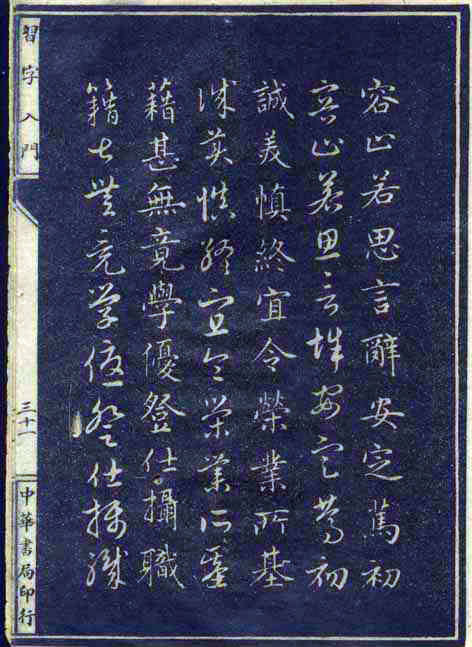 容止若思言辭安定篤初
容止若思言辭安定篤初
誠美慎終宜令榮業所基
誠美慎終宜令榮業所基
藉甚無竟學優登仕攝職
籍甚無竟學優登仕攝職
習字入門
三十一
中華書局印行